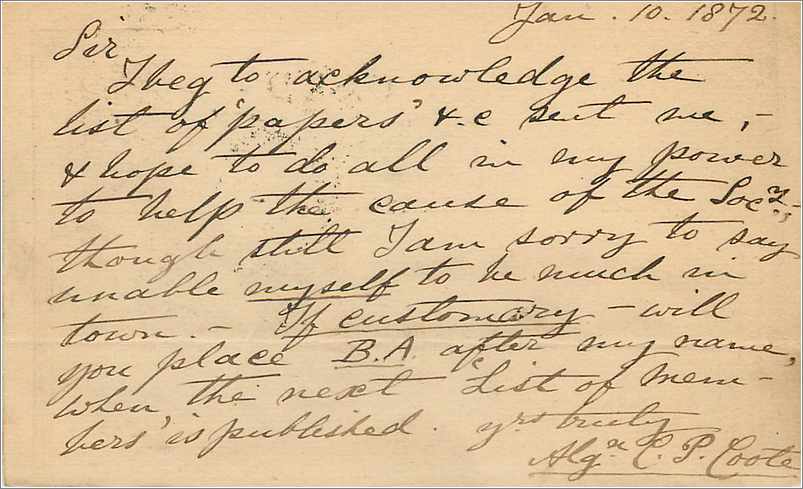 Jan. 10. 1872.
Sir
I beg to acknowledge the
list of 'papers' &c sent me, -
& hope to do all in my power
to help the cause of the Socy, -
though still I am sorry to say
unable myself to be much in
town. - If customary - will
you place B.A. after my name,
when the next 'List of Mem-
bers' is published. yrs truly
Algn C. P. Coote